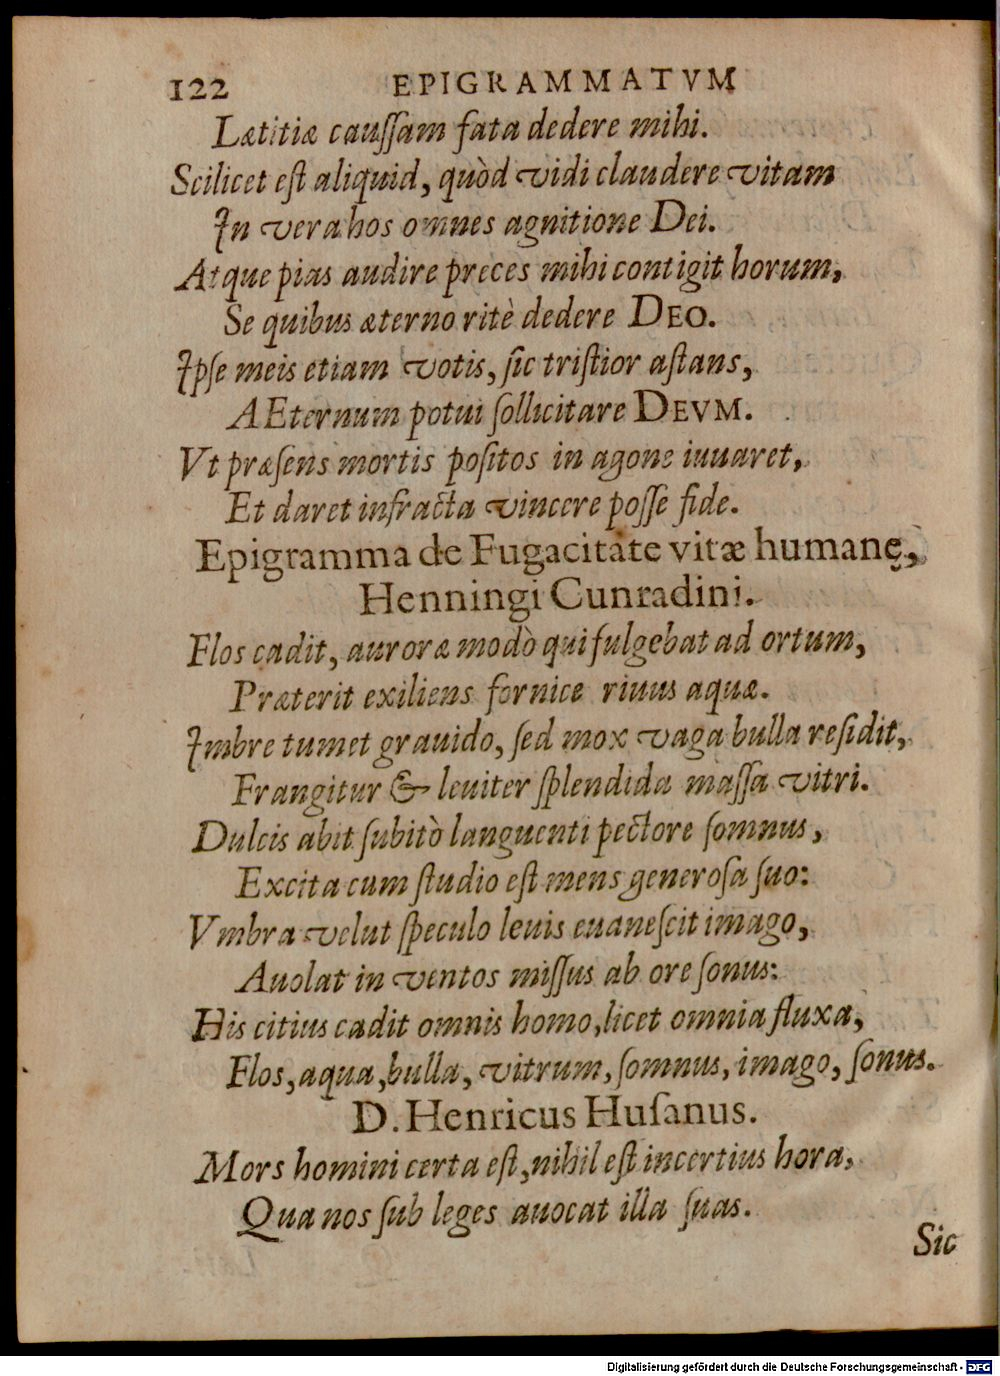 122 EPIGRAMMATVM
Lætitiæ caussam fata dedere mihi.
Scilicet est aliquid, quòd vidi claudere vitam
In vera hos omnes agnitione Dei.
Atque pias audire preces mihi contigit horum,
Se quibus æterno ritè dedere DEO.
Ipse meis etiam votis, sic tristior astans,
AEternum potui sollicitare DEVM.
Vt præsens mortis positos in agone iuuaret,
Et daret infracta vincere posse fide.
Epigramma de Fugacitate vitæ humanę,
Henningi Cunradini.
Flos cadit, auroræ modò qui fulgebat ad ortum,
Præterit exiliens fornice riuus aquæ.
Imbre tumet grauido, sed mox vaga bulla residit,
Frangitur & leuiter splendida massa vitri.
Dulcis abit subitò languenti pectore somnus,
Excita cum studio est mens generosa suo:
Vmbra velut speculo leuis euanescit imago,
Auolat in ventos missus ab ore sonus:
His citius cadit omnis homo, licet omnia fluxa,
Flos, aqua, bulla, vitrum, somnus, imago, sonus.
D. Henricus Husanus.
Mors homini certa est, nihil est incertius hora,
Qua nos sub leges auocat illa suas.
Sic
Digitalisierung gefördert durch die Deutsche Forschungsgemeinschaft - DFG